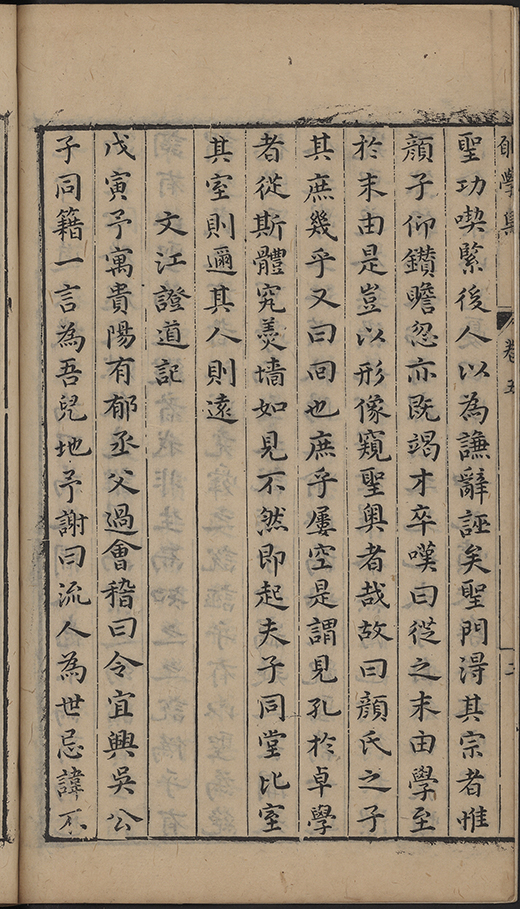 卷五
二
聖功喫緊後人以為謙辭誣矣聖門淂其宗者惟
顔子仰鑚瞻忽亦既竭才卒嘆曰從之末由學至
於末由是豈以形像窺聖奥者哉故曰顔氏之子
其庶幾乎又曰回也庶乎屢空是謂見孔於卓學
者從斯體究羮墻如見不然即起夫子同堂比室
其室則邇其人則遠
文江證道記
戊寅予寓貴陽有郁丞父過會稽曰令宜興吳公
子同籍一言為吾兒地予謝曰流人為世忌諱不